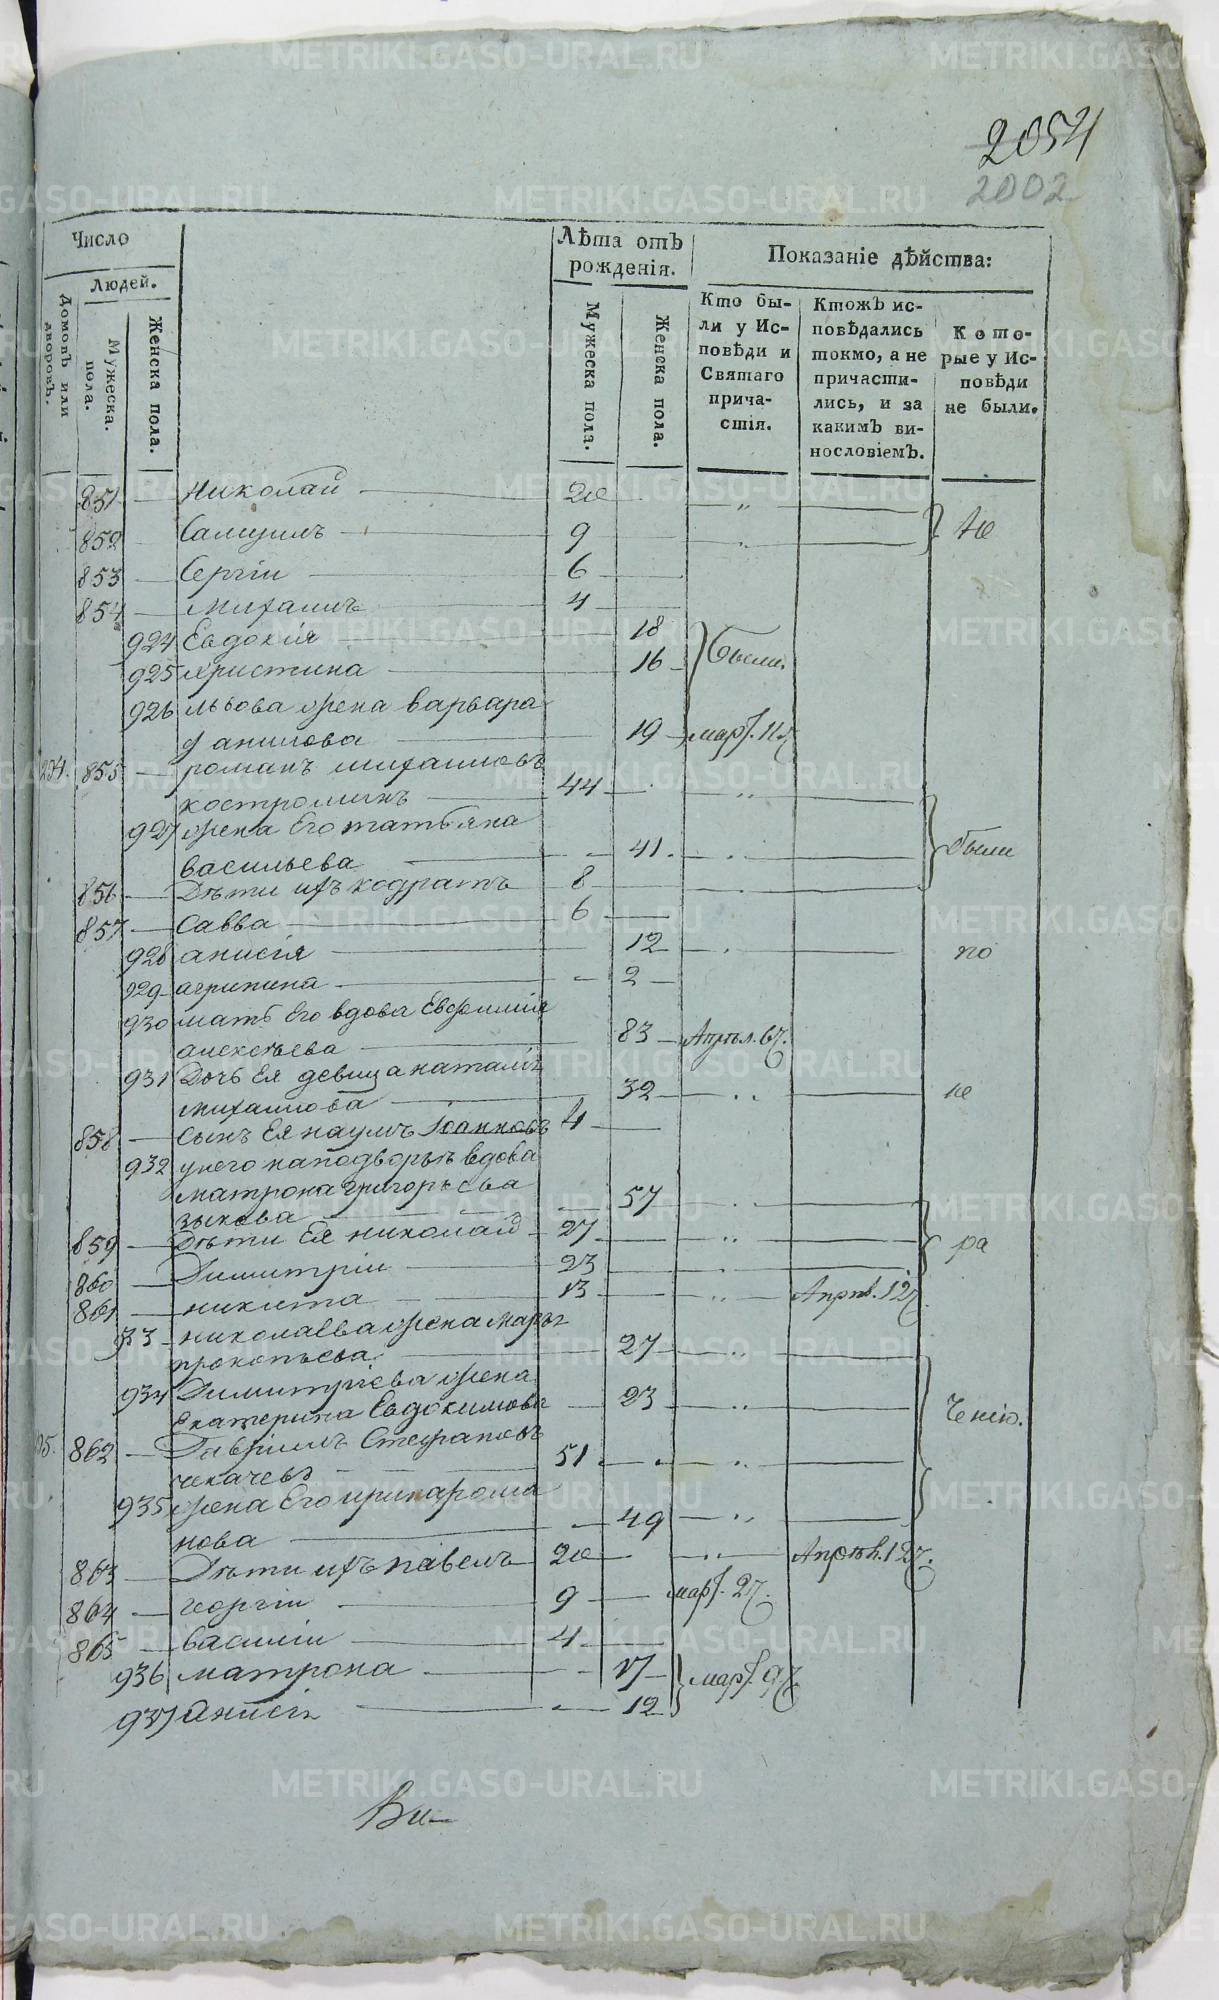 2054
2002
Число
Людей.
Домовъ или дворовъ.
Мужеска. пола.
Женска пола.
Лѣта отъ рожденія.
Мужеска пола.
Женска пола.
Показаніе дѣйства:
Кто бы-
ли у Ис-
повѣди и
Святаго
прича-
стія.
Ктожъ ис-
повѣдались
токмо, а не
причасти-
лись, и за
какимъ ви-
нословіемъ.
Кото-
рые у Ис-
повѣди
не были.
851 Николай 20
852 Самуилъ 9 Не
853 Сергій 6
854 Михаилъ 4
924 Евдокія 18
925 Христина 16 были
926 Львова жена варвара
Данилова 19 мар. 11
204. 855 романъ михаиловъ
костроминъ 44
927 жена Его татьяна
васильева 41 были
856 Дѣти ихъ кодратъ 8
857 Савва 6
928 анисія 12 по
929 агрипина 2
930 мать Его вдова Евфимія
алексѣева 83 Апрѣл. 6
931 Дочь Ея девица наталія
михаилова 32 не
858 Сынъ Ея наумъ Іоанновъ 4
932 у него на подворьѣ вдова
матрона григорьева
зыкова 57
859 Дѣти Ея николай 27 ра
860 Димитрій 23
861 никита 13 Апрѣ. 12
933 николаева жена марья
прокопьева 27
934 Димитріева жена
Екатерина Евдокимова 23 ченію.
05. 862 Гавріилъ Стефановъ
чекачевъ 51
935 жена Его ирина рома
нова 49
863 Дѣти ихъ павелъ 20 Апрѣл. 12
864 георгій 9 мар. 2
865 василій 4
936 матрона 17 мар. 9
937 Анисія 12
Ви-
METRIKI.GASO-URAL.RU